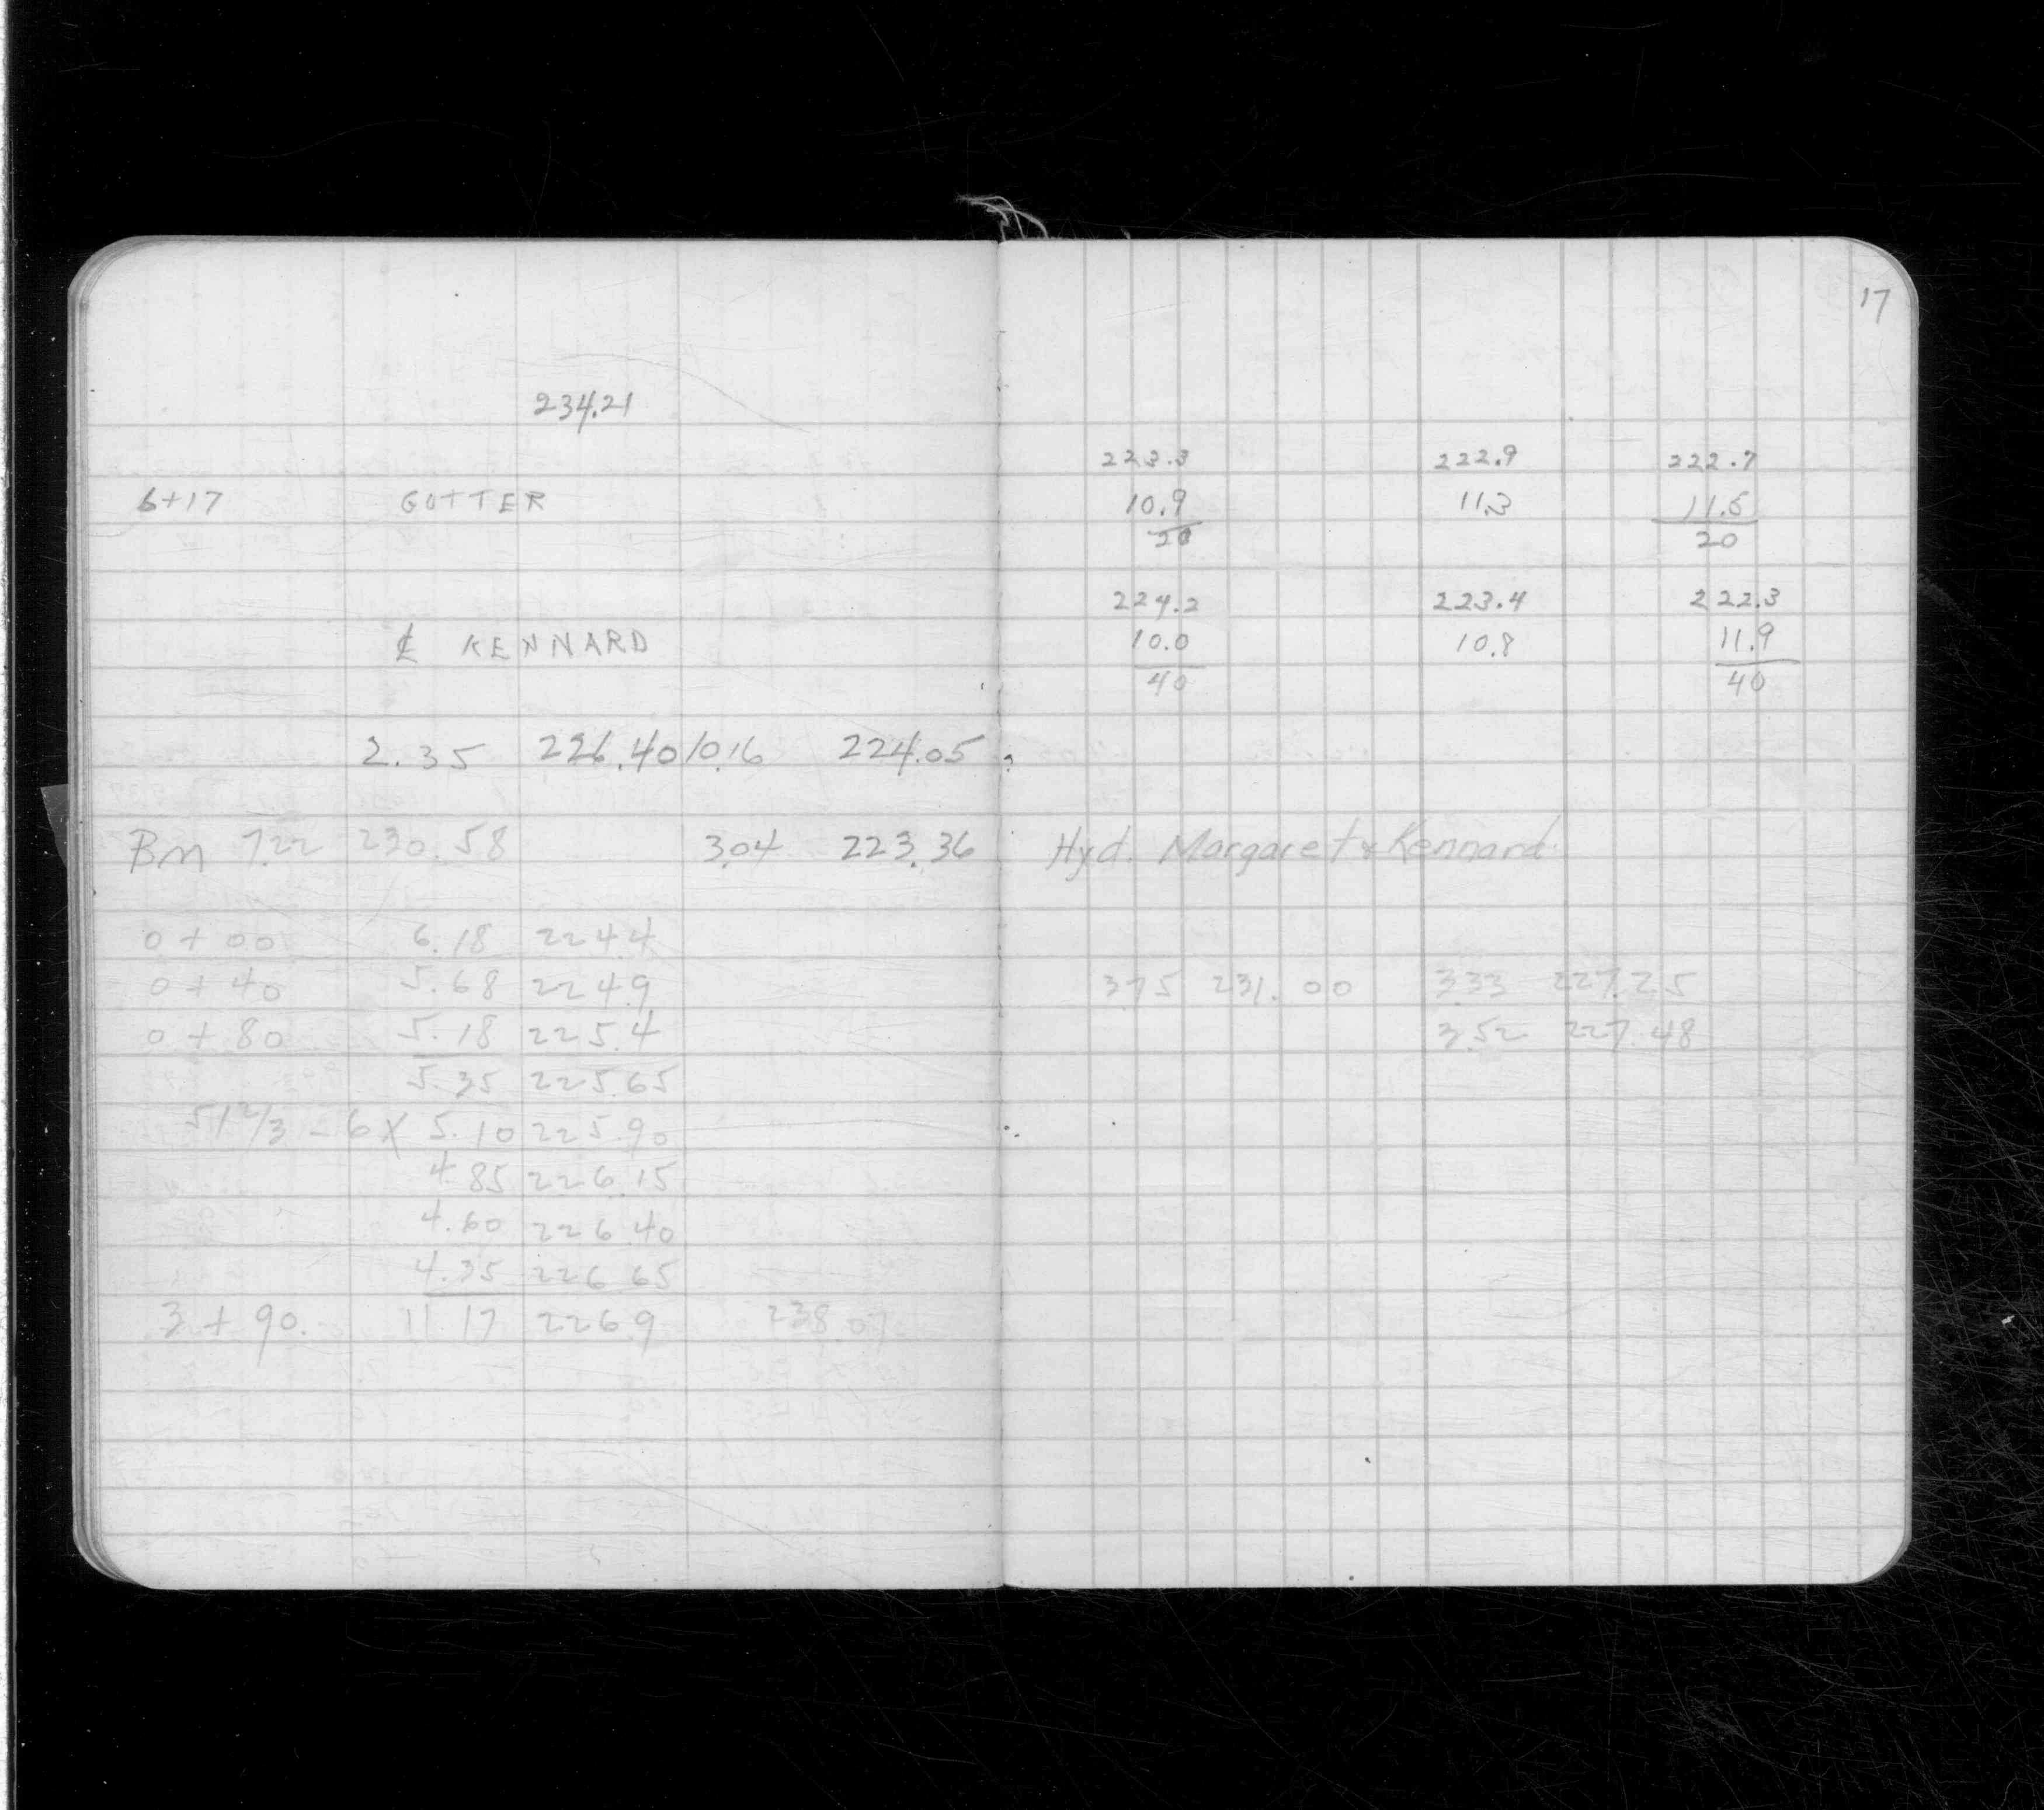 17
234.21
223.3 222.9 222.7
6+17 GUTTER 10.9 11.3 11.5
20 20
224.2 223.4 222.3
℄ KENNARD 10.0 10.8 11.9
40 40
2.35 226.40 10.16 224.05
BM 7.22 230.58 3.04 223.36 Hyd. Margaret & Kennard
0+00 6.18 224.4
0+40 5.68 224.9 3.75 231.00 3.33 227.25
0+80 5.18 225.4 3.52 227.48
5.35 225.65
51 2/3 - 6 X 5.10 225.90
4.85 226.15
4.60 226.40
4.35 226.65
3+90. 11.17 226.9 238.07